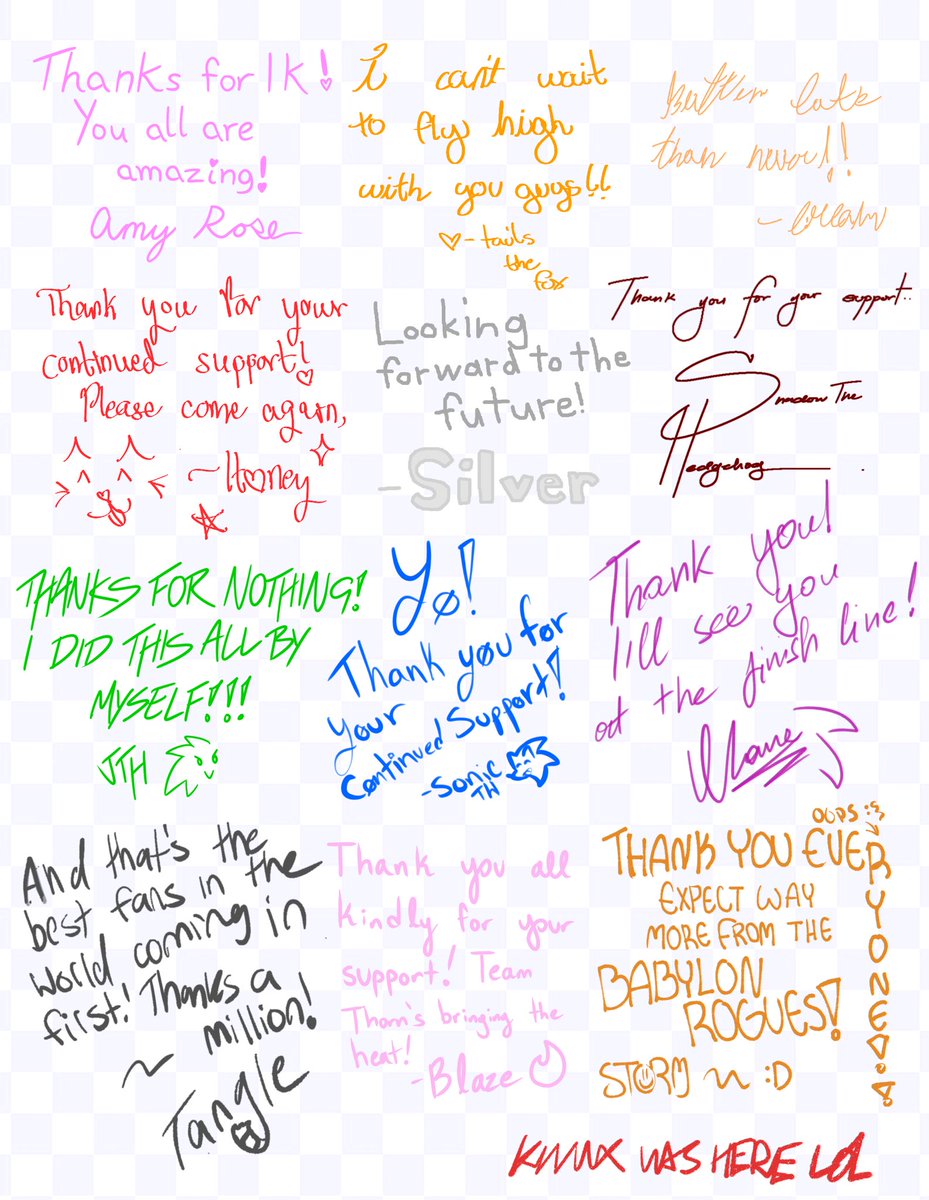 Thanks for 1K!
You all are
amazing!
Amy Rose
I can't wait
to fly high
with you guys!!
♡-tails
the
fox
Better late
than never!!
~Cream
Thank you for your
continued support!
Please come again,
~Honey
Looking
forward to the
future!
-Silver
Thank you for your support..
Shadow The
Hedgehog
THANKS FOR NOTHING!
I DID THIS ALL BY
MYSELF!!!
JTH
Yo!
Thank you for
your
Continued Support!
-Sonic
TH
Thank you!
I'll see you
at the finish line!
And that's the
best fans in the
world coming in
first! Thanks a
million!
~
Tangle
Thank you all
kindly for your
support! Team
Thorn's bringing the
heat!
-Blaze
OOPS :3
THANK YOU EVERYONE!
EXPECT WAY
MORE FROM THE
BABYLON
ROGUES!
STORM ~ :D
WAS HERE LOL